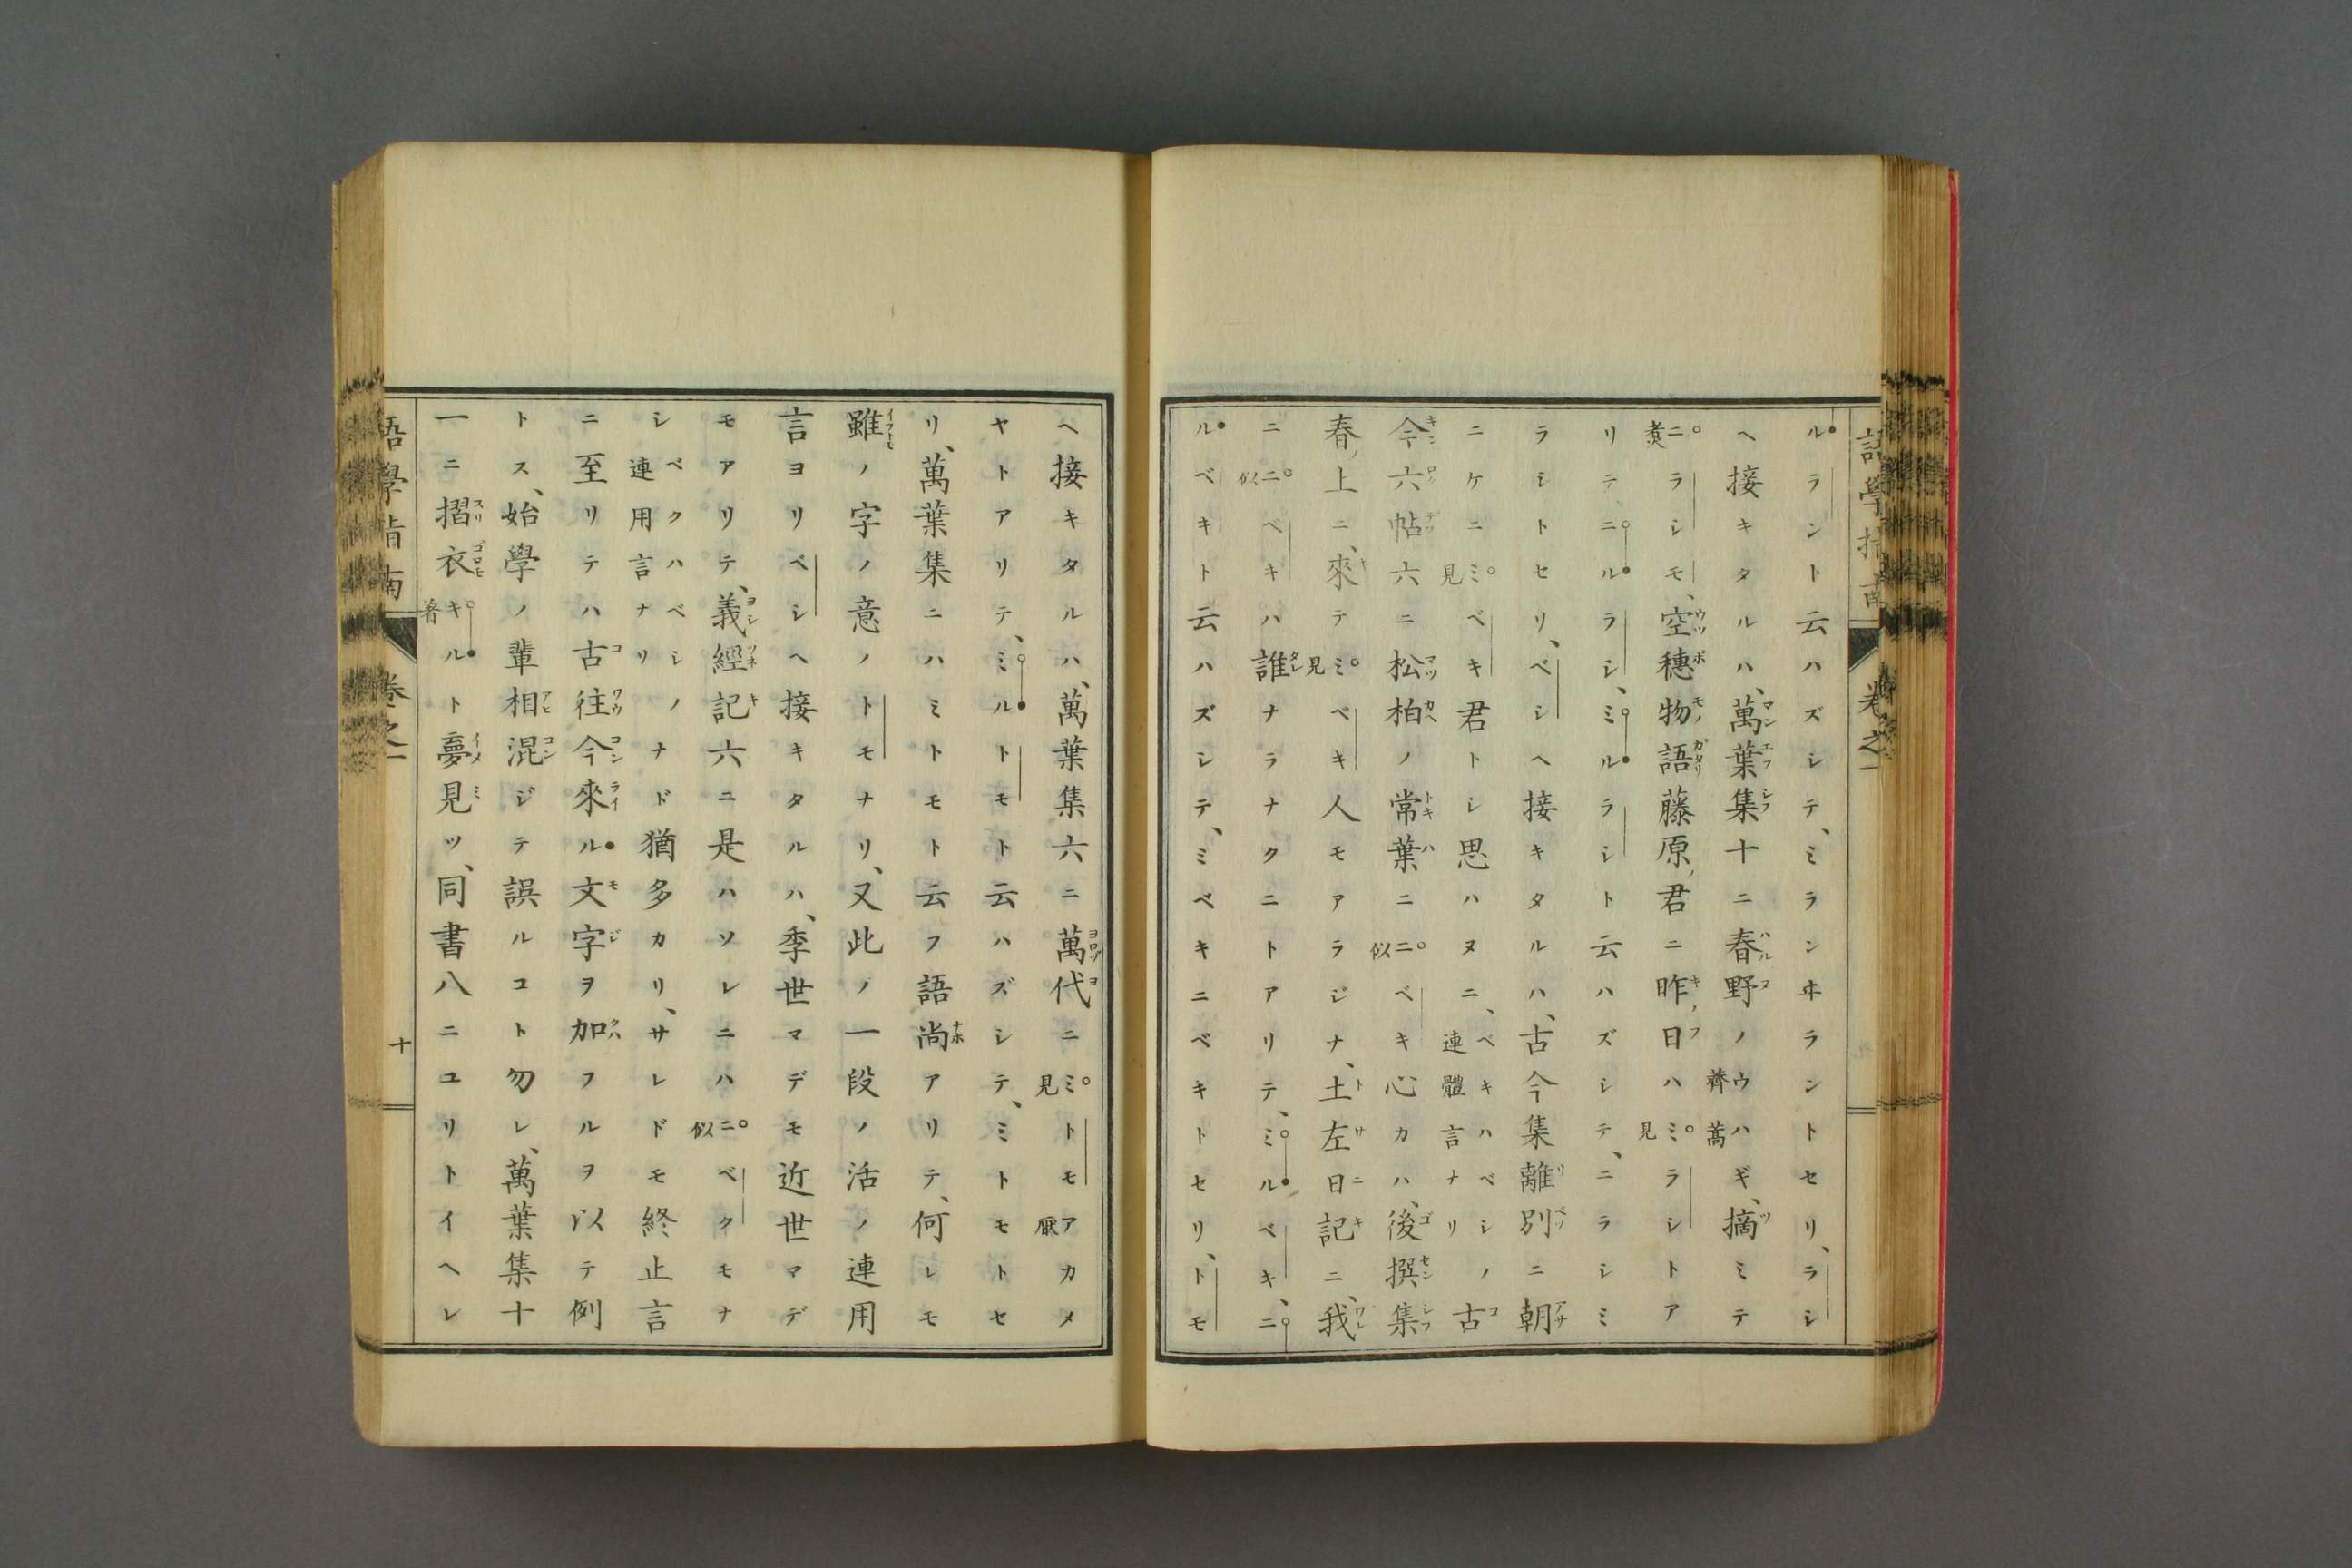 ルラント云ハズシテ、ミランヰラントセリ、ラシ
ヘ接キタルハ、萬葉集十ニ春野ノウハギ、摘ミテ
ニラシモ、空穗物語藤原ノ君ニ昨日ハミラシトア
リテニルラシ、ミルラシト云ハズシテ、ニラシミ
ラシトセリ、ベシヘ接キタルハ、古今集離別ニ朝
ニケニミベキ君トシ思ハヌニ、ベキハベシノ連體言ナリ古
今六帖六ニ松柏ノ常葉ニニベキ心カハ、後撰集
春ノ上ニ、來テミベキ人モアラジナ、土左日記ニ、我
ニニベキハ誰ナラナクニトアリテ、ミルベキ、ニ
ルベキト云ハズシテ、ミベキニベキトセリ、トモ
ヘ接キタルハ、萬葉集六ニ萬代ニミトモアカメ
ヤトアリテ、ミルトモト云ハズシテ、ミトモトセ
リ、萬葉集ニハミトモト云フ語尚アリテ、何レモ
雖ノ字ノ意ノトモナリ、又此ノ一段ノ活ノ連用
言ヨリベシヘ接キタルハ、季世マデモ近世マデ
モアリテ、義經記六ニ是ハソレニハニベクモナ
シベクハベシノ連用言ナリナド猶多カリ、サレドモ終止言
ニ至リテハ古往今來ル文字ヲ加フルヲ以テ例
トス、始學ノ輩相混ジテ誤ルコト勿レ、萬葉集十
一ニ摺衣キルト夢見ツ、同書八ニユリトイヘレ
語學指南
卷之一
十